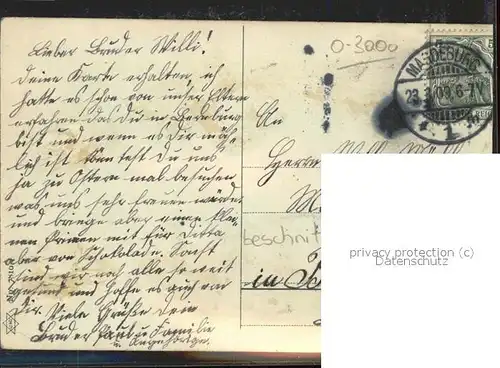 Lieber Bruder Willi!
Deine Karte erhalten, ich
hatte es schon von unser Eltern
erfahren das du in Bernburg
bist und wenn es dir mög
lich ist könntest du uns
ja zu Ostern mal besuchen
was uns sehr freuen würde
und bringe aber einen kle
nen Priemen mit für Ditta
aber von Schokolade. Sonst
sind wir noch alle so weit
gesund und hoffe es auch von
Dir. Viele Grüße dein
Bruder Paul u Familie
u Angehörige.
0-3000
MAGDEBURG
23.3.09.6-7V
1
An
Herrn
beschnit
in
privacy protection (c)
Datenschutz